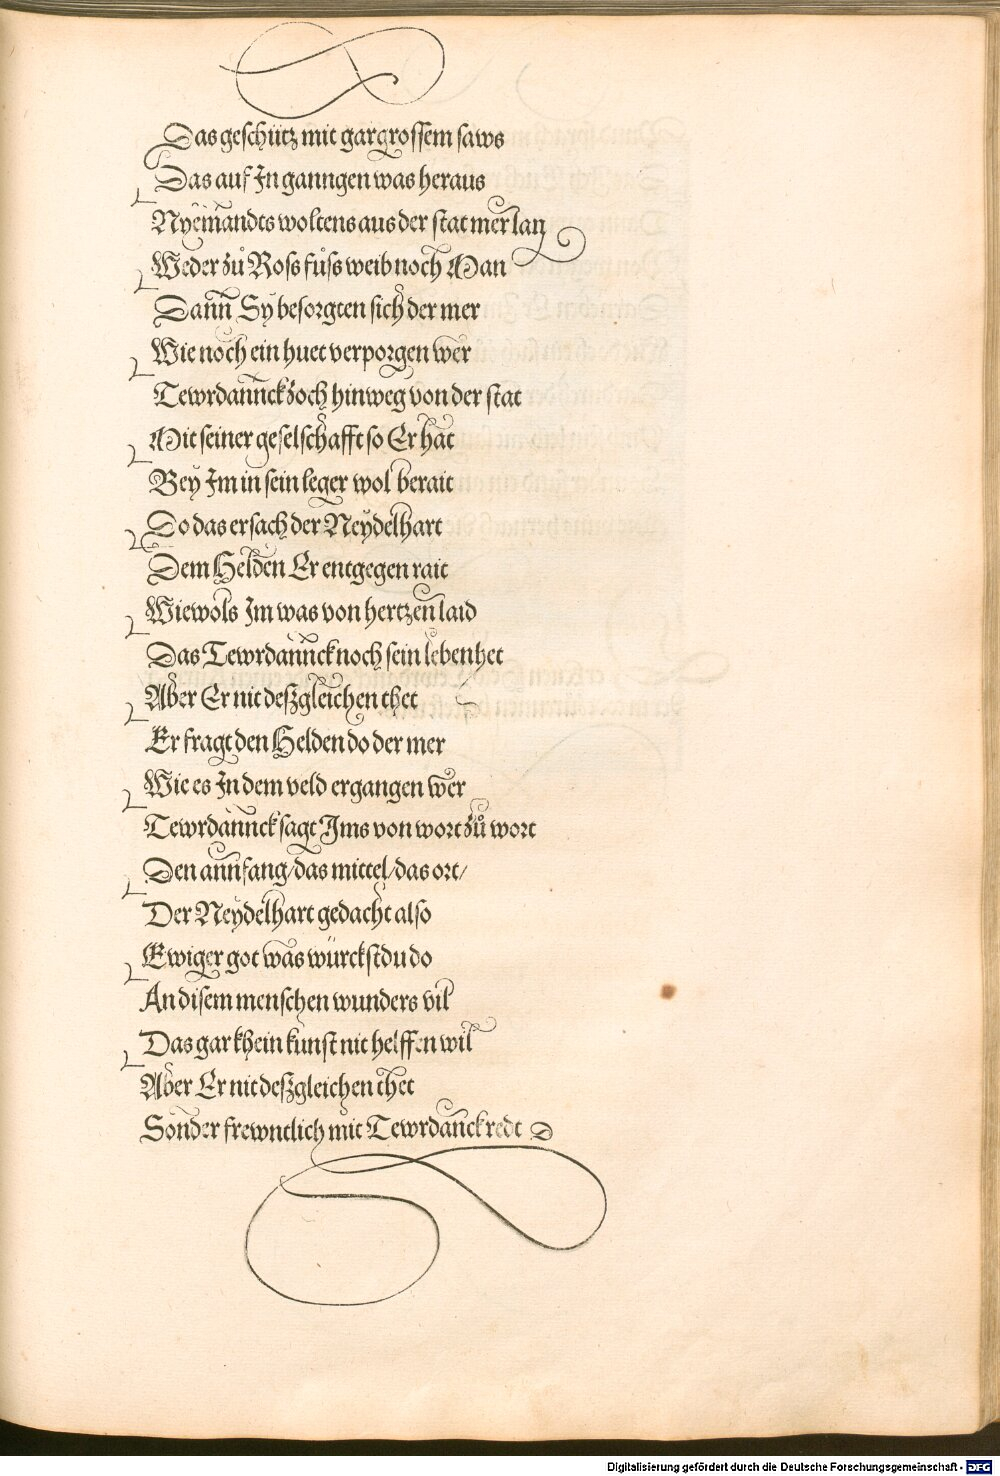 Das geschütz mit gar grossem saws
Das auf In ganngen was heraus
Nyemandts woltens aus der stat mer lan
Weder zů Ross fůss weib noch Man
Dann Sy besorgten sich der mer
Wie noch ein huet verporgen wer
Tewrdannck zoch hinweg von der stat
Mit seiner geselschafft so Er hat
Bey Im in sein leger wol berait
Do das ersach der Neydelhart
Dem Helden Er entgegen rait
Wiewols Im was von hertzen laid
Das Tewrdannck noch sein leben het
Aber Er nit deszgleichen thet
Er fragt den Helden do der mer
Wie es In dem veld ergangen wer
Tewrdannck sagt Ims von wort zů wort
Den annfang/das mittel/das ort/
Der Neydelhart gedacht also
Ewiger got was würckstdu do
An disem menschen wunders vil
Das gar khein kunst nit helffen wil
Aber Er nit deszgleichen thet
Sonder frewntlich mit Tewrdannck redt
Digitalisierung gefördert durch die Deutsche Forschungsgemeinschaft - DFG